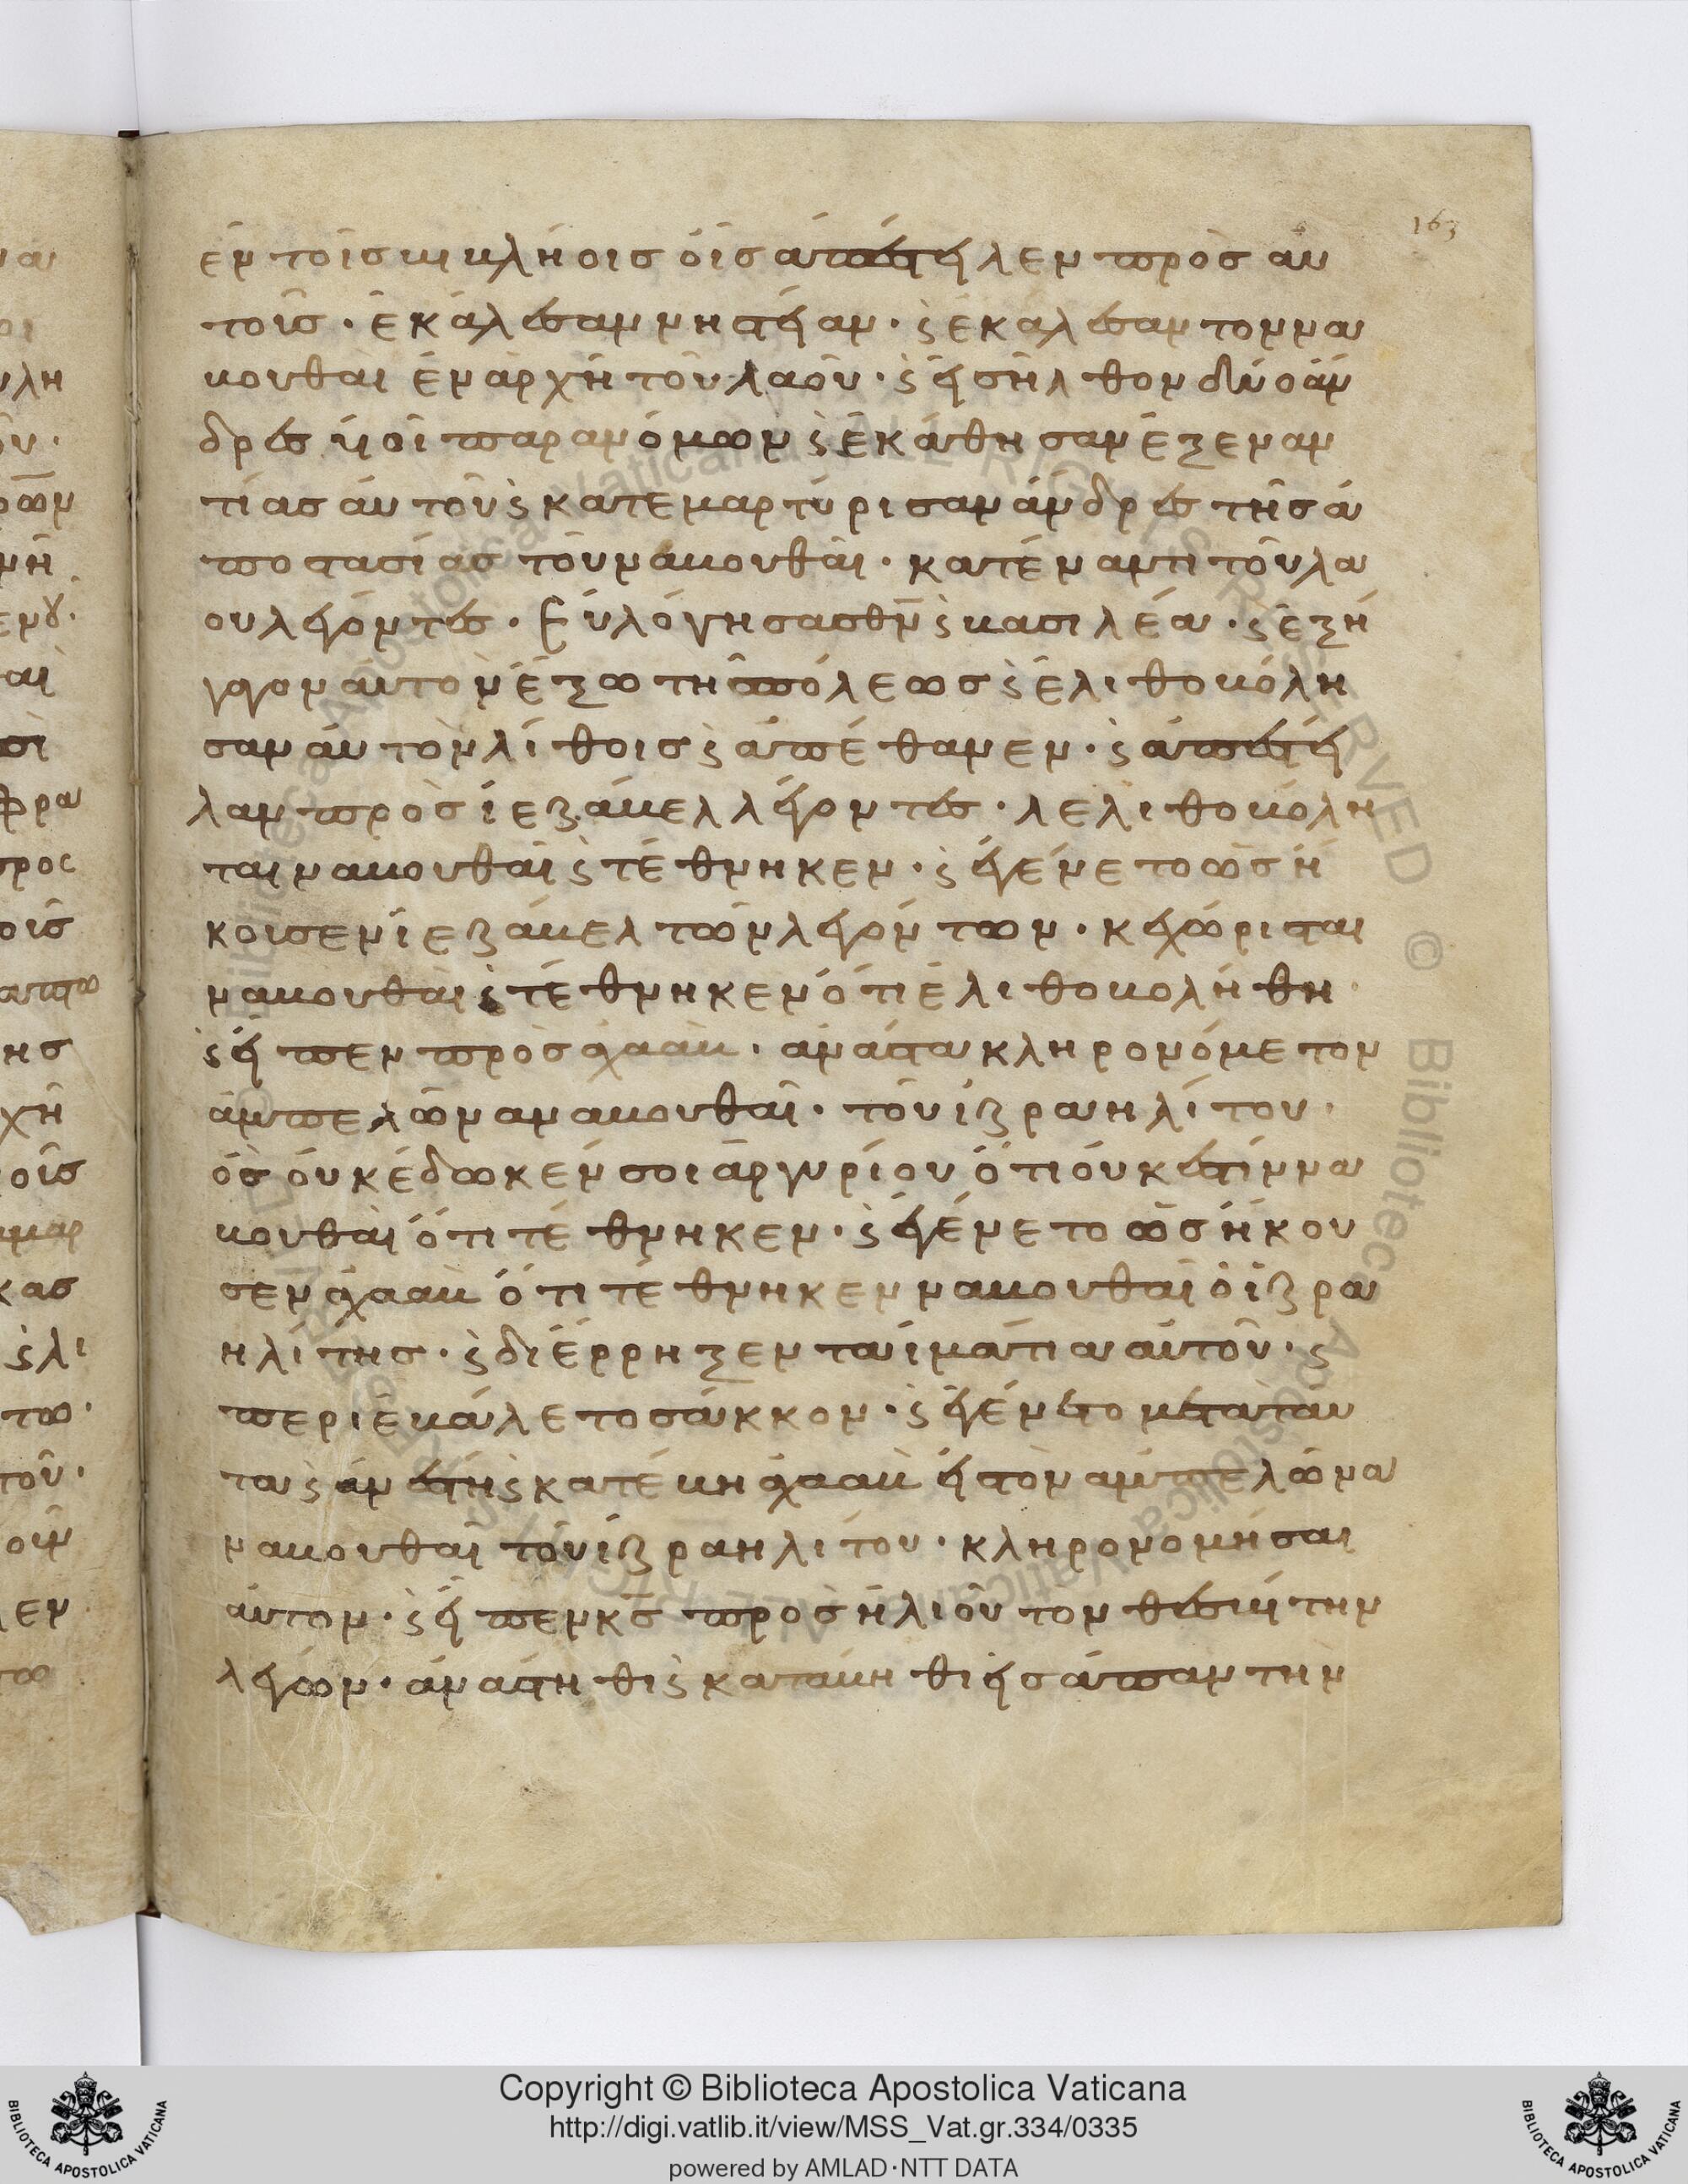 163
ἐν τοῖς βιβλήοις οἷς ἀπέστειλεν πρὸς αὐ
τοῖς · ἐκάλεσαν νηστείαν · ϛ ἐκάλεσαν τον να
βουθαὶ ἐν ἀρχῆ τοῦ λαοῦ · ϛ εἰσῆλθον δύο ἄν
δρες υἱοὶ παρανόμων ϛ ἐκάθησαν ἐξεναν
τίας αὐτοῦ ϛ κατεμαρτύρισαν ἄνδρες τῆς ἀ
ποστασίας τοῦ ναβουθαὶ · κατέναντι τοῦ λα
ου λέγοντες · Εὐλόγησας θν ϛ βασιλέα · ϛ ἐξή
γαγον αὐτὸν ἔξω τῆς πόλεως ϛ ἐλιθοβόλη
σαν αὐτὸν λίθοις ϛ ἀπέθανεν · ϛ ἀπέστει
λαν πρὸς ἰεζάβελ λέγοντες · λελιθοβόλη
ται ναβουθαὶ ϛ τέθνηκεν · ϛ ἐγένετο ὡς ἤ
κουσεν ἰεζάβελ τῶν λεγόντων · κεχώρισται
ναβουθαὶ ϛ τέθνηκεν ὅτι ἐλιθοβολήθη
ϛ εἶπεν πρὸς ἀχαὰβ · ἀνάστα κληρονόμε τον
ἀμπελῶνα ναβουθαὶ · τοῦ ἰζραηλίτου ·
ὃς οὐκ ἔδωκέν σοι ἀργυρίου ὅτι οὐκ ἐστὶν να
βουθαὶ ὅτι τέθνηκεν · ϛ ἐγένετο ὡς ἤκου
σεν ἀχαὰβ ὅτι τέθνηκεν ναβουθαὶ ὁ ἰζρα
ηλίτης · ϛ διέρρηξεν τὰ ἱμάτια αὐτοῦ · ϛ
περιεβάλετο σάκκον · ϛ ἐγένετο μετὰ ταῦ
τα ϛ ἀνέστη ϛ κατέβη ἀχαὰβ εἰς τὸν ἀμπελῶνα
ναβουθαὶ τοῦ ἰζραηλίτου · κληρονομῆσαι
αὐτον · ϛ εἶπεν κς πρὸς ἠλιοῦ τον θεσβίτην
λέγων · ἀνάστηθι ϛ κατάβηθι εἰς ἀπαντὴν
Copyright © Biblioteca Apostolica Vaticana
http://digi.vatlib.it/view/MSS_Vat.gr.334/0335
powered by AMLAD·NTT DATA